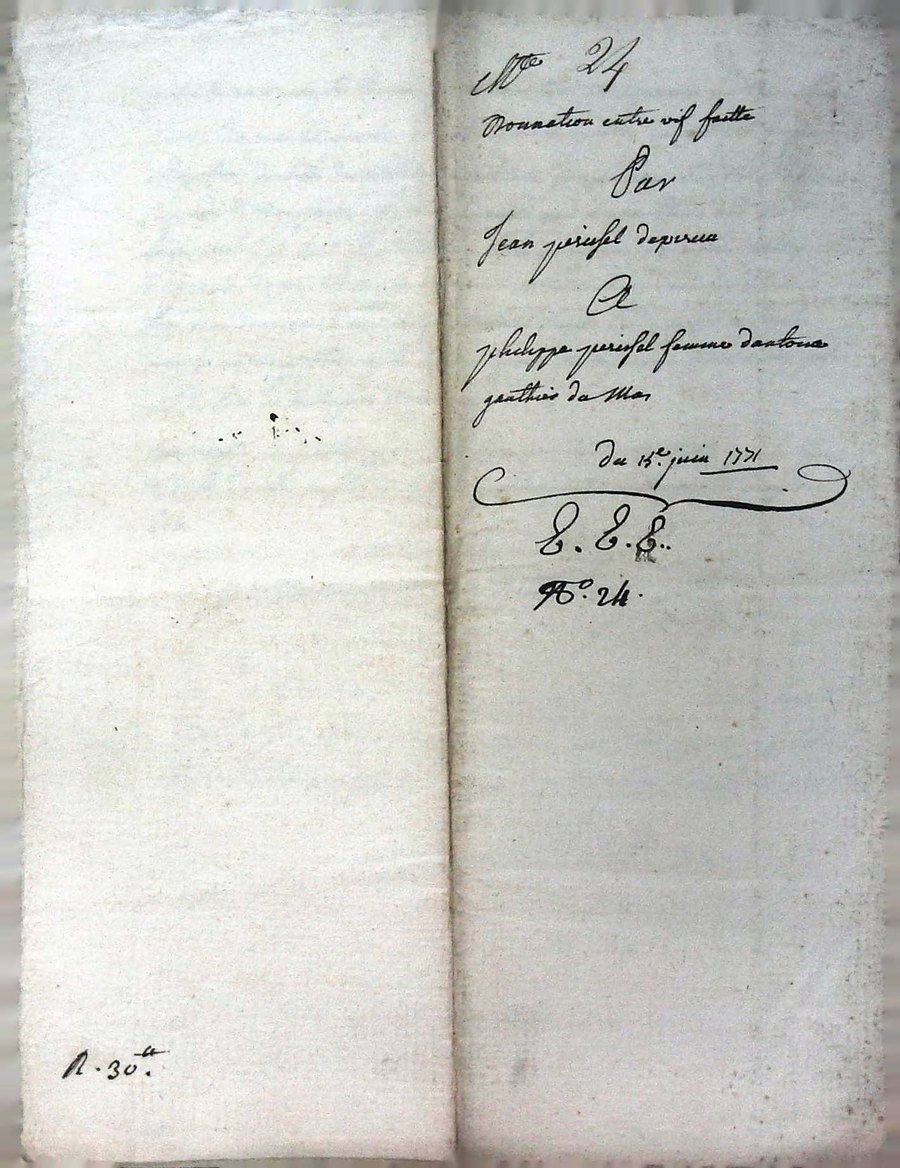 24
Donnation entre vif faitte
Par
Jean perissel
A
philippe perissel femme dantoine
gauthier du Mas
Du 15e. juin 1771
E. E. E.
No. 24.
R. 30tt.